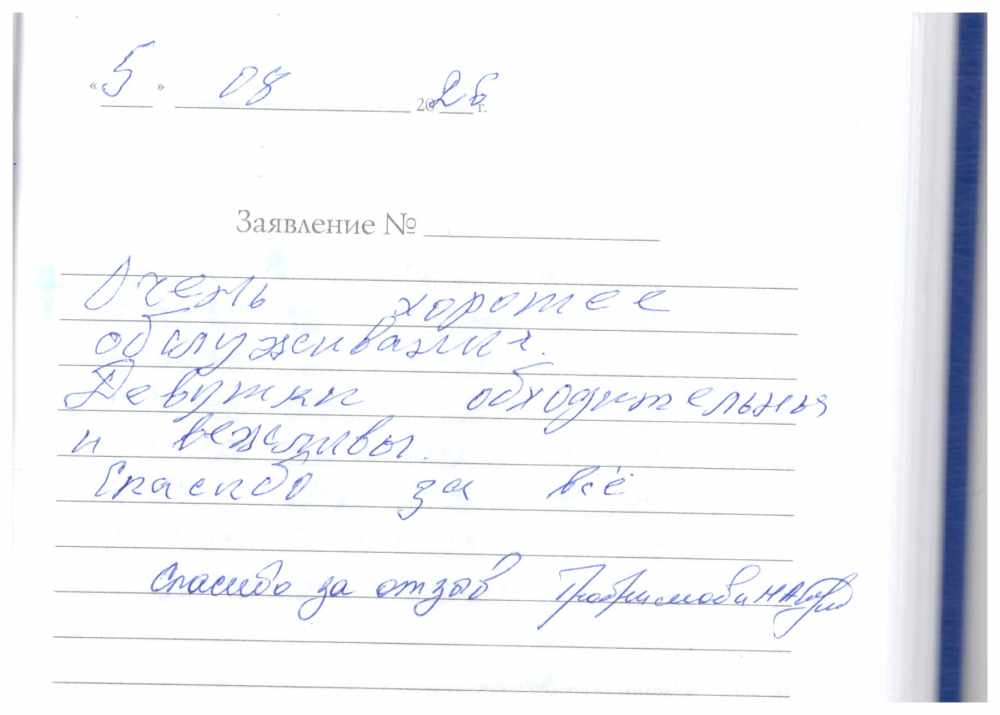 « 5 » 08 2026 г.
Заявление №
Очень хорошее
обслуживания.
Девушки обходительны
и вежливы.
Спасибо за всё
Спасибо за отзыв